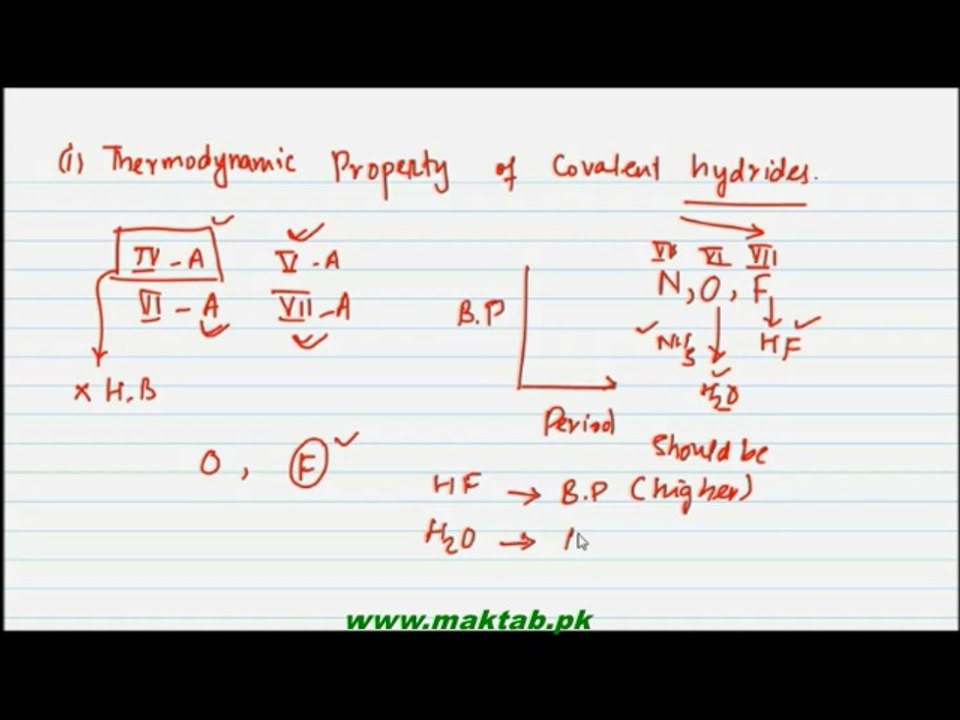 (i) Thermodynamic Property of Covalent hydrides.
IV - A V - A
VI - A VII - A
x H.B
B.P
Period
VI VII
N, O, F
NH3 HF
H2O
O, F
Should be
HF → B.P (higher)
H2O →
www.maktab.pk